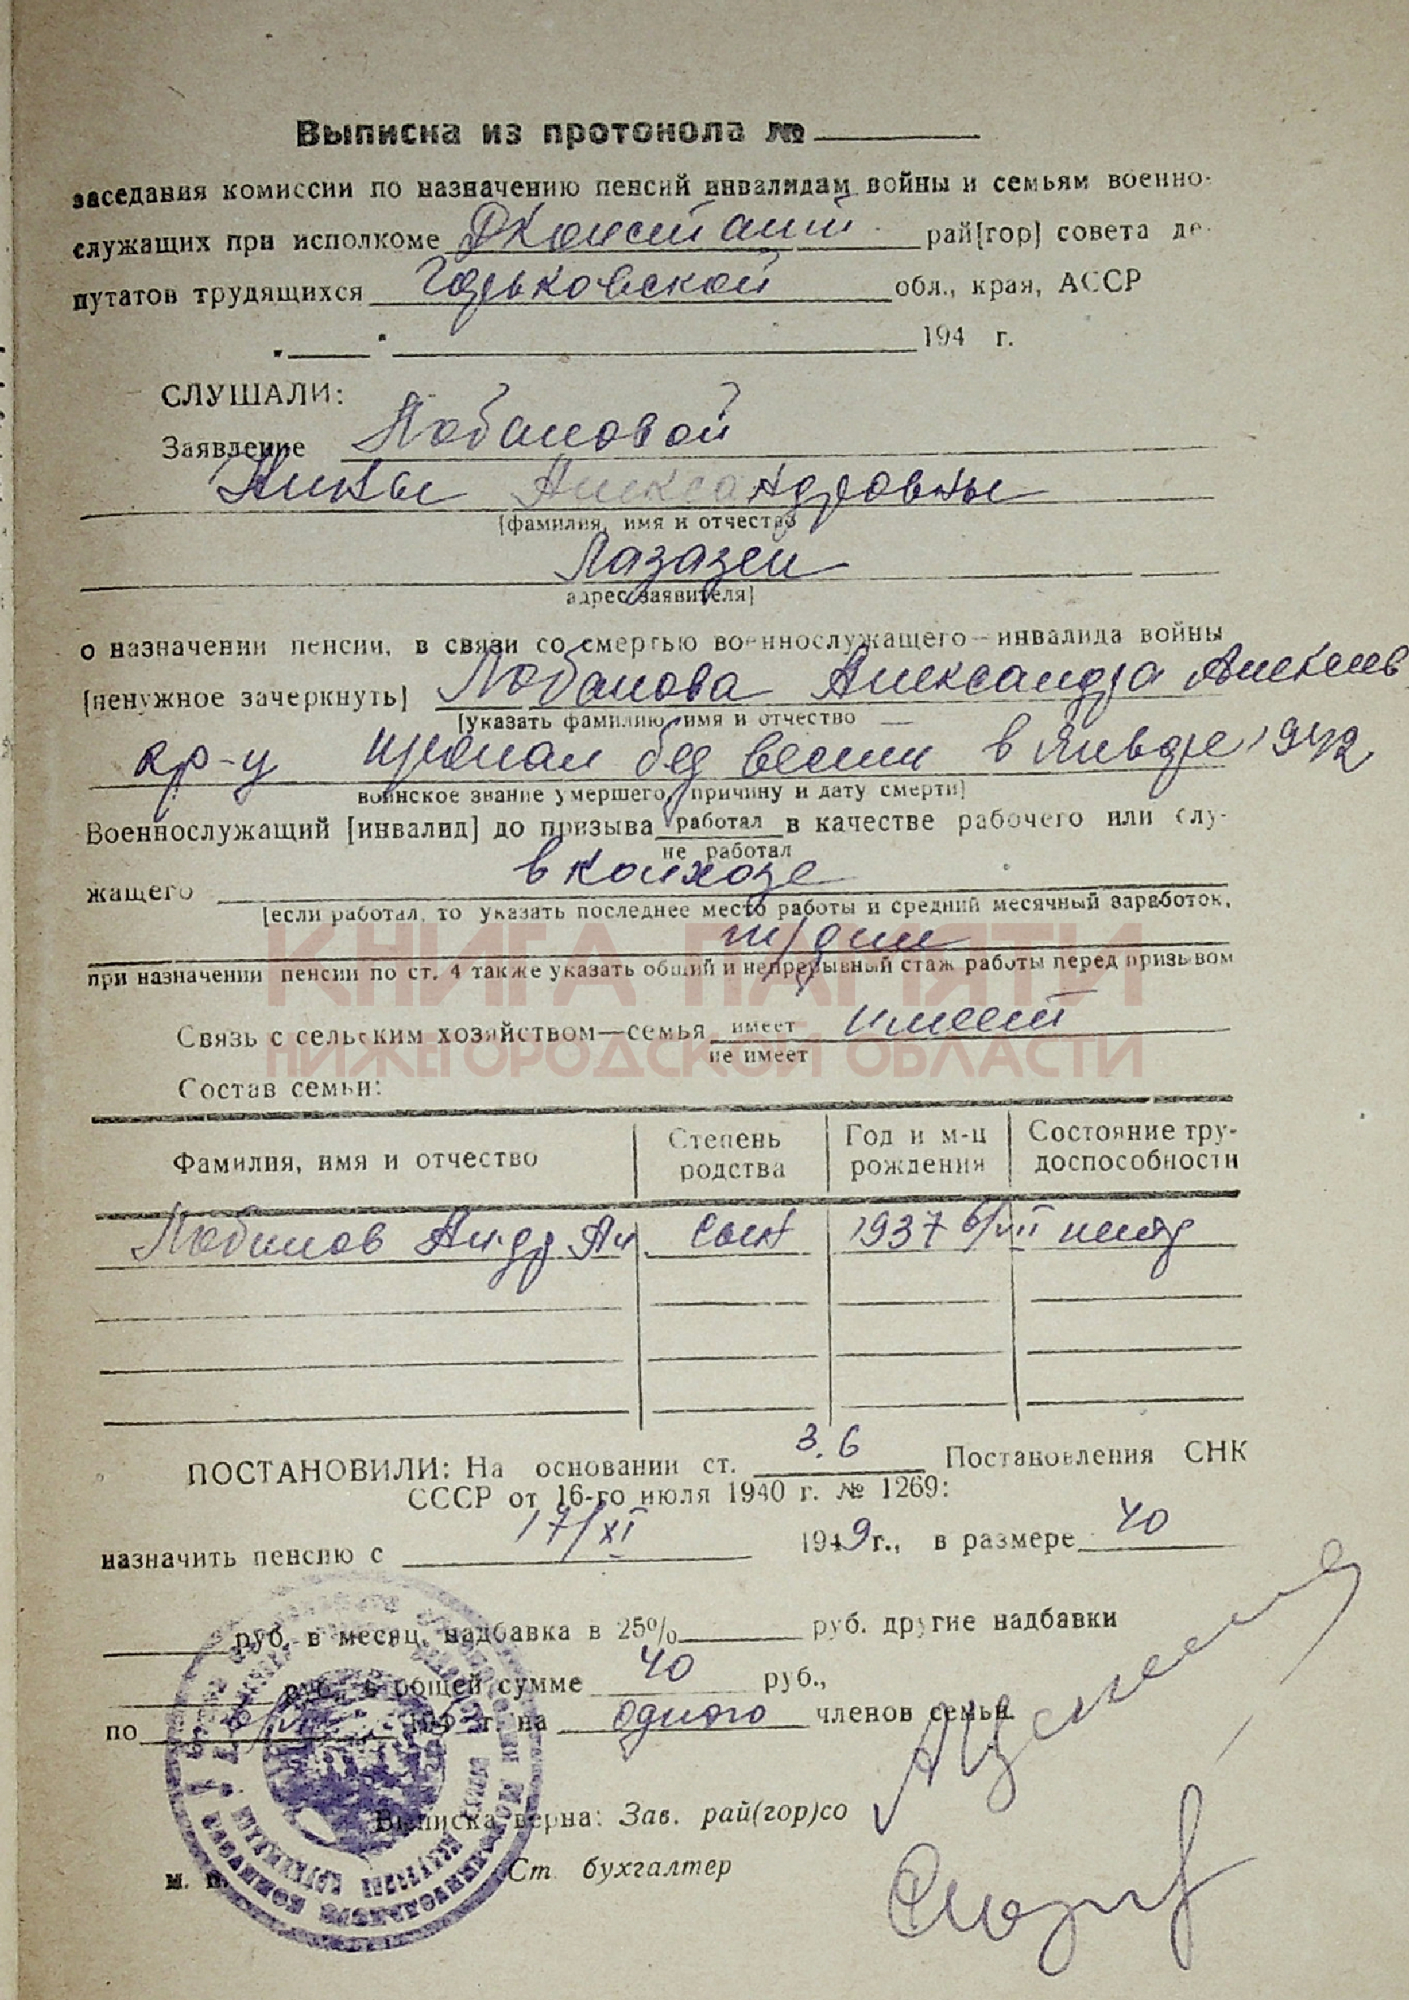 Выписка из протокола №
заседания комиссии по назначению пенсий инвалидам войны и семьям военно-
служащих при исполкоме ДКонстант. рай[гор] совета де-
путатов трудящихся Горьковской обл., края, АССР
„ " 194 г.
СЛУШАЛИ:
Заявление Лобановой
Нины Александровны
[фамилия, имя и отчество
Лазазей
адрес заявителя]
о назначении пенсии, в связи со смертью военнослужащего—инвалида войны
[ненужное зачеркнуть] Лобанова Александра Алексеев
[указать фамилию, имя и отчество —
кр-ц пропал без вести в январе 1942
воинское звание умершего, причину и дату смерти]
Военнослужащий [инвалид] до призыва работал в качестве рабочего или слу-
не работал
жащего в колхозе
[если работал, то указать последнее место работы и средний месячный заработок,
тр/дни
при назначении пенсии по ст. 4 также указать общий и непрерывный стаж работы перед призывом
КНИГА ПАМЯТИ
Связь с сельским хозяйством—семья имеет имеет
не имеет
НИЖЕГОРОДСКОЙ ОБЛАСТИ
Состав семьи:
Фамилия, имя и отчество Степень родства Год и м-ц рождения Состояние тру-доспособности
Лобанов Андр Ал. сын 1937 6/VII иждд
ПОСТАНОВИЛИ: На основании ст. 3.6 Постановления СНК
СССР от 16-го июля 1940 г. № 1269:
назначить пенсию с 17/XI 1949 г., в размере 40
руб. в месяц, надбавка в 25% руб. другие надбавки
руб., в общей сумме 40 руб.,
по г. на одного членов семьи.
Выписка верна: Зав. рай(гор)со
м. п. Ст. бухгалтер